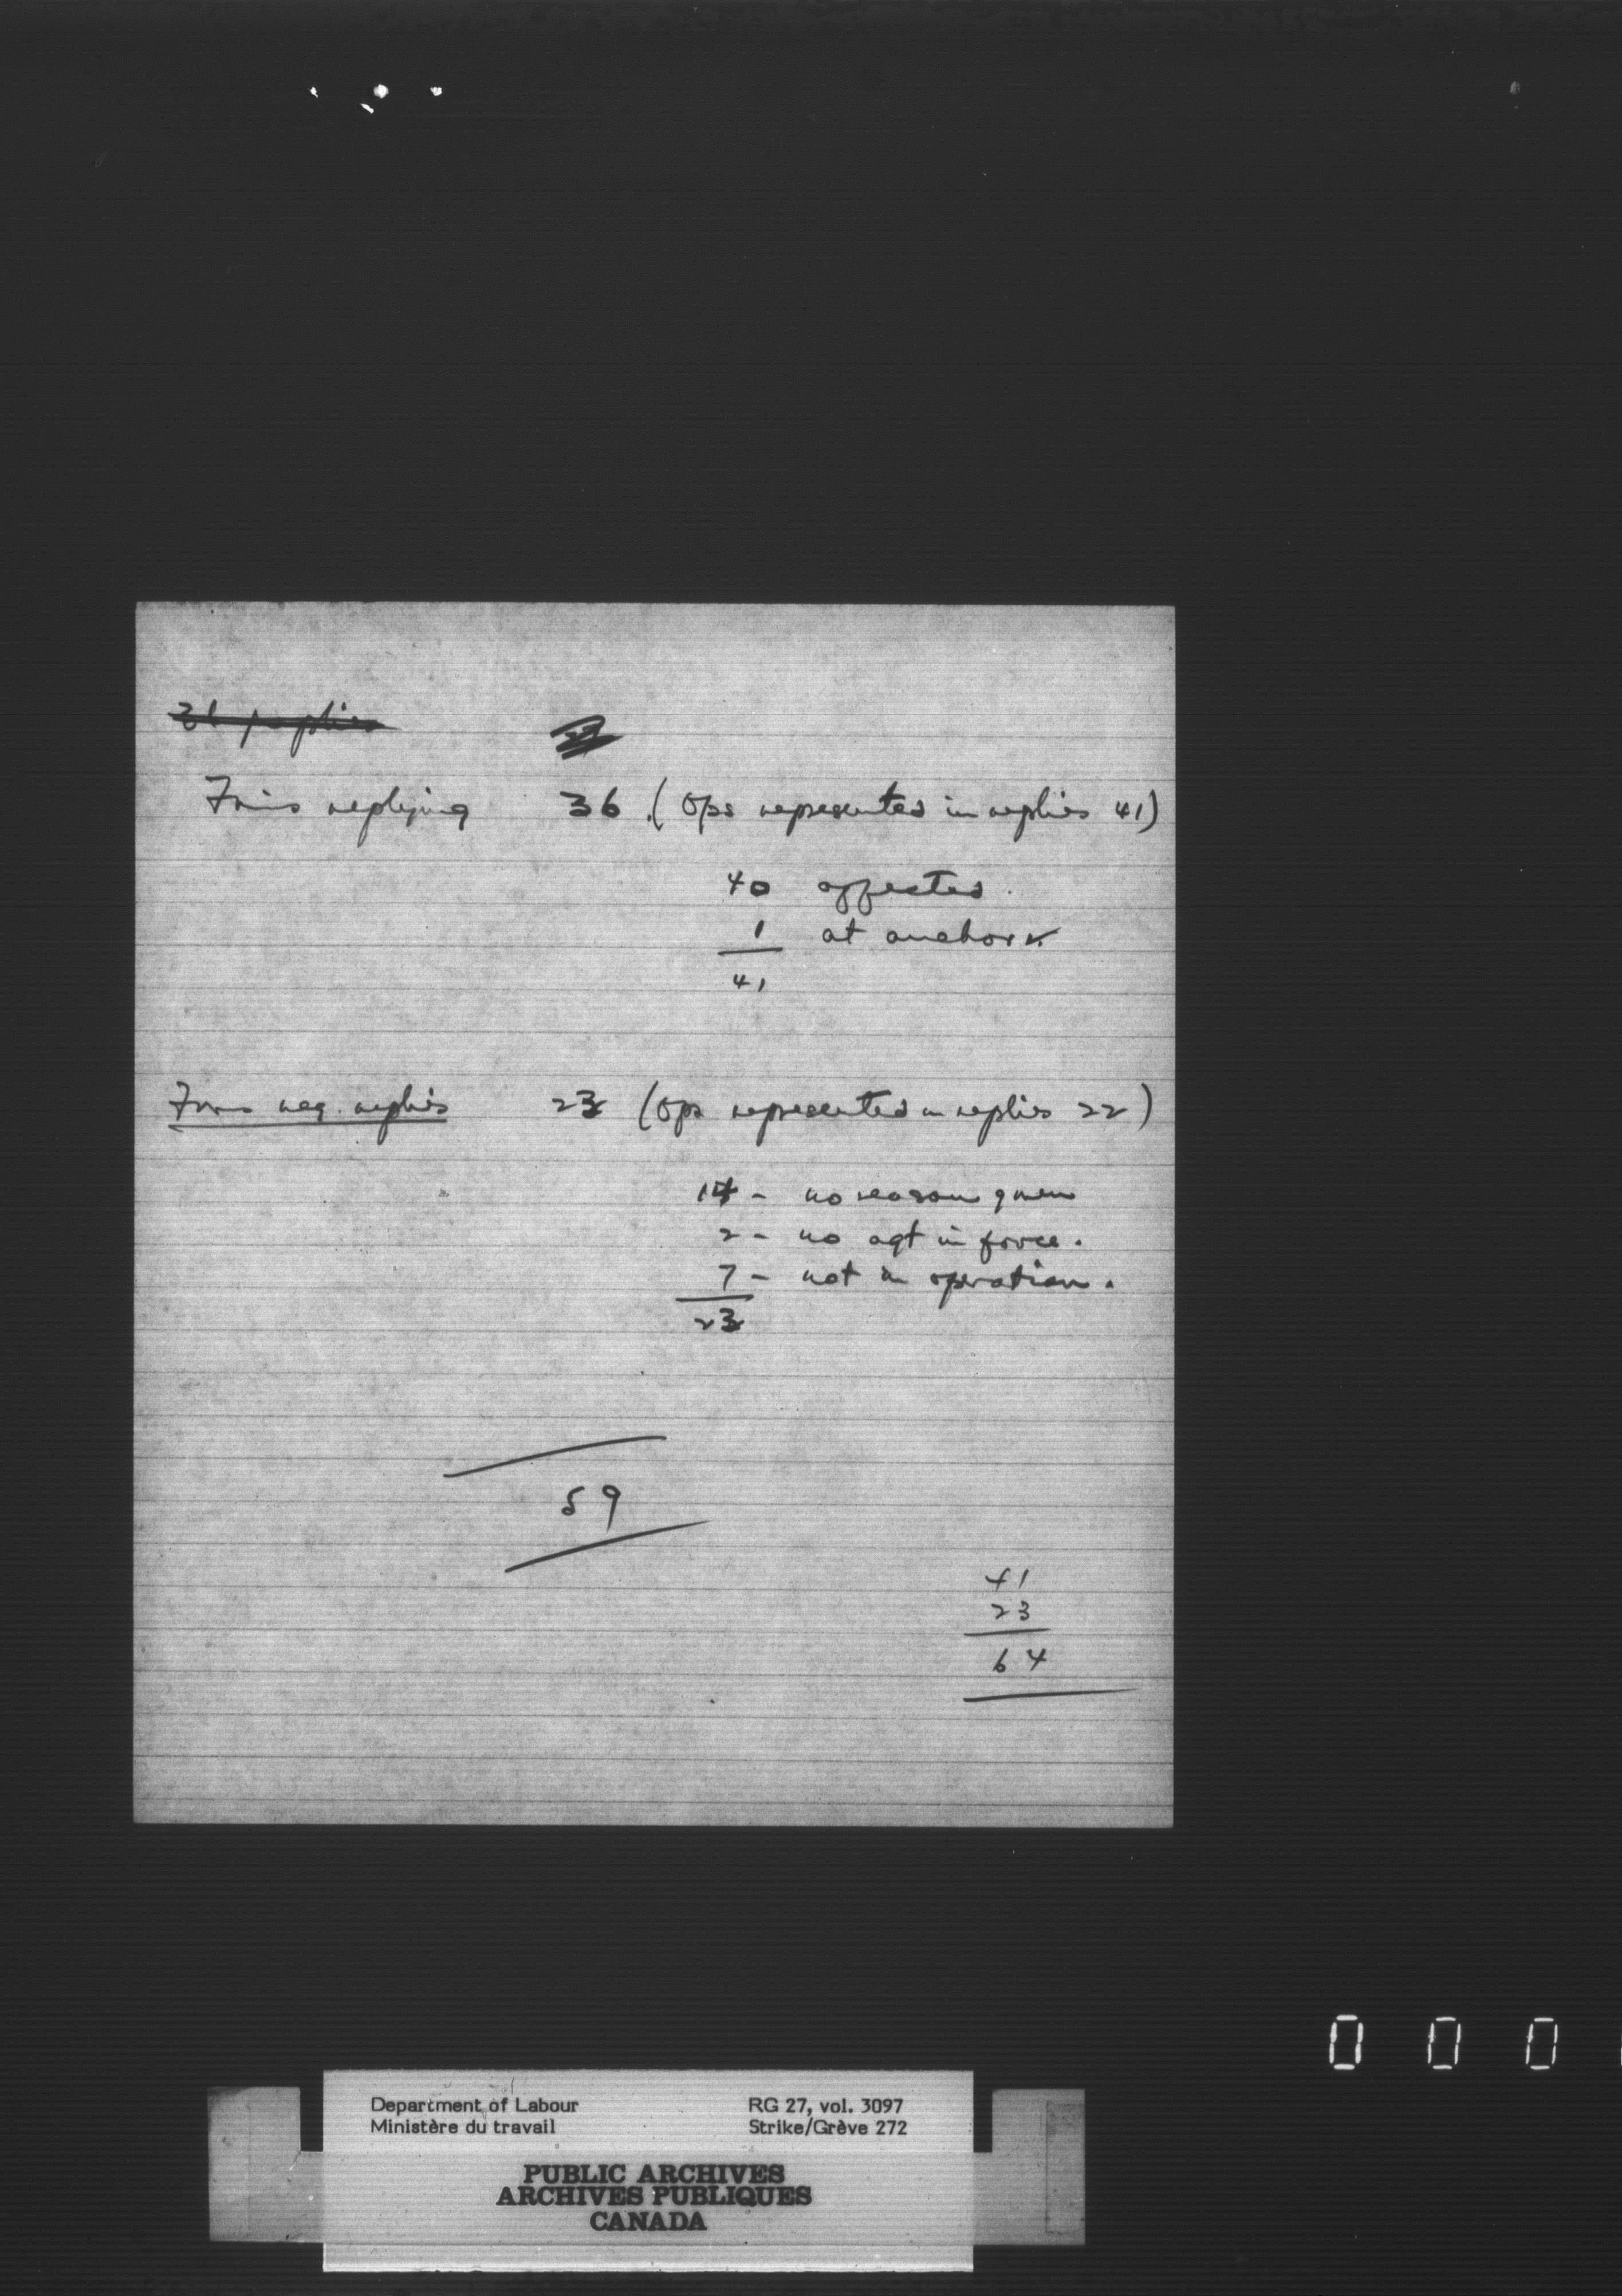 Firms replying 36 (Ops represented in replies 41)
40 affected
1 at anchor
41
Firms neg. replies 23 (Ops represented in replies 22)
14 - no reason given
2 - no agt in force.
7 - not in operation.
23
59
41
23
64
0 0 0
Department of Labour RG 27, vol. 3097
Ministère du travail Strike/Grève 272
PUBLIC ARCHIVES
ARCHIVES PUBLIQUES
CANADA